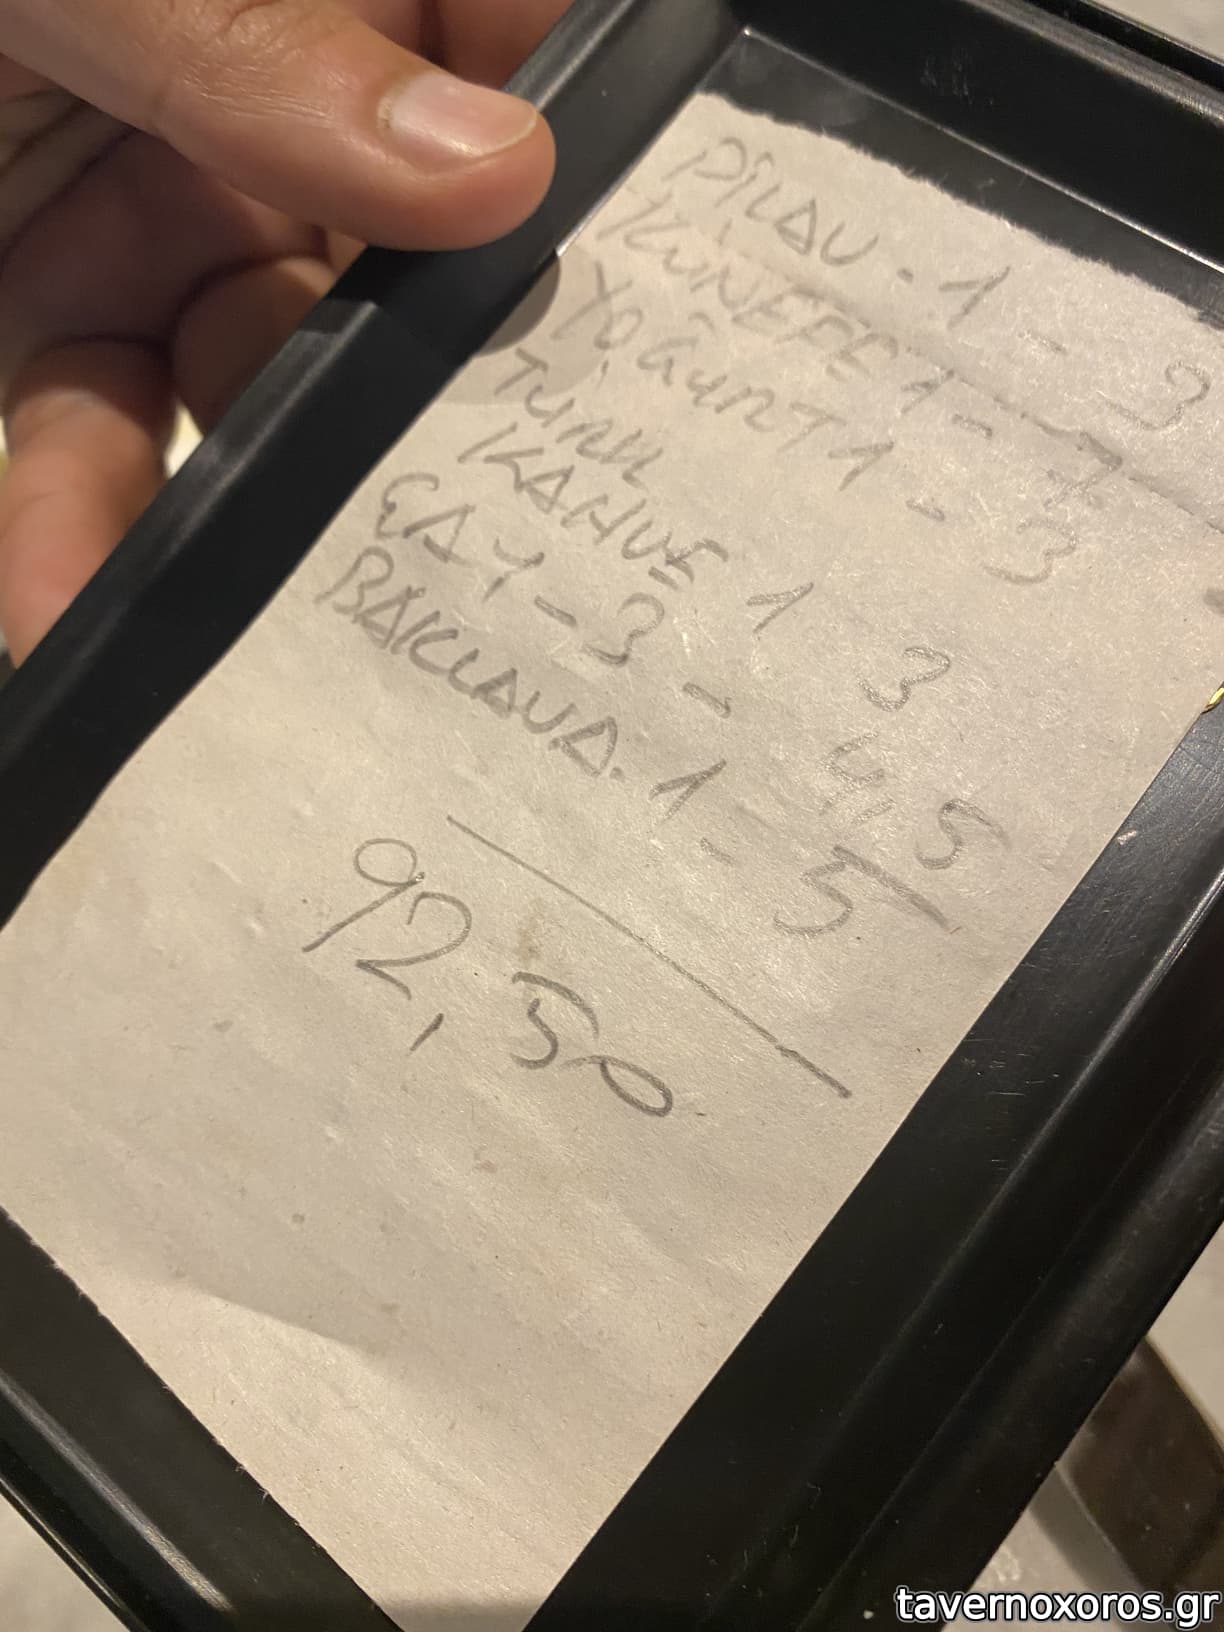 PILAU . 1 - 3
KÜNEFE 1 - 7
YOGURT 1 - 3
TURK
KAHVE 1 3
CAY - 3 - 4,5
BAKLAVA . 1 - 5
92,50
tavernoxoros.gr